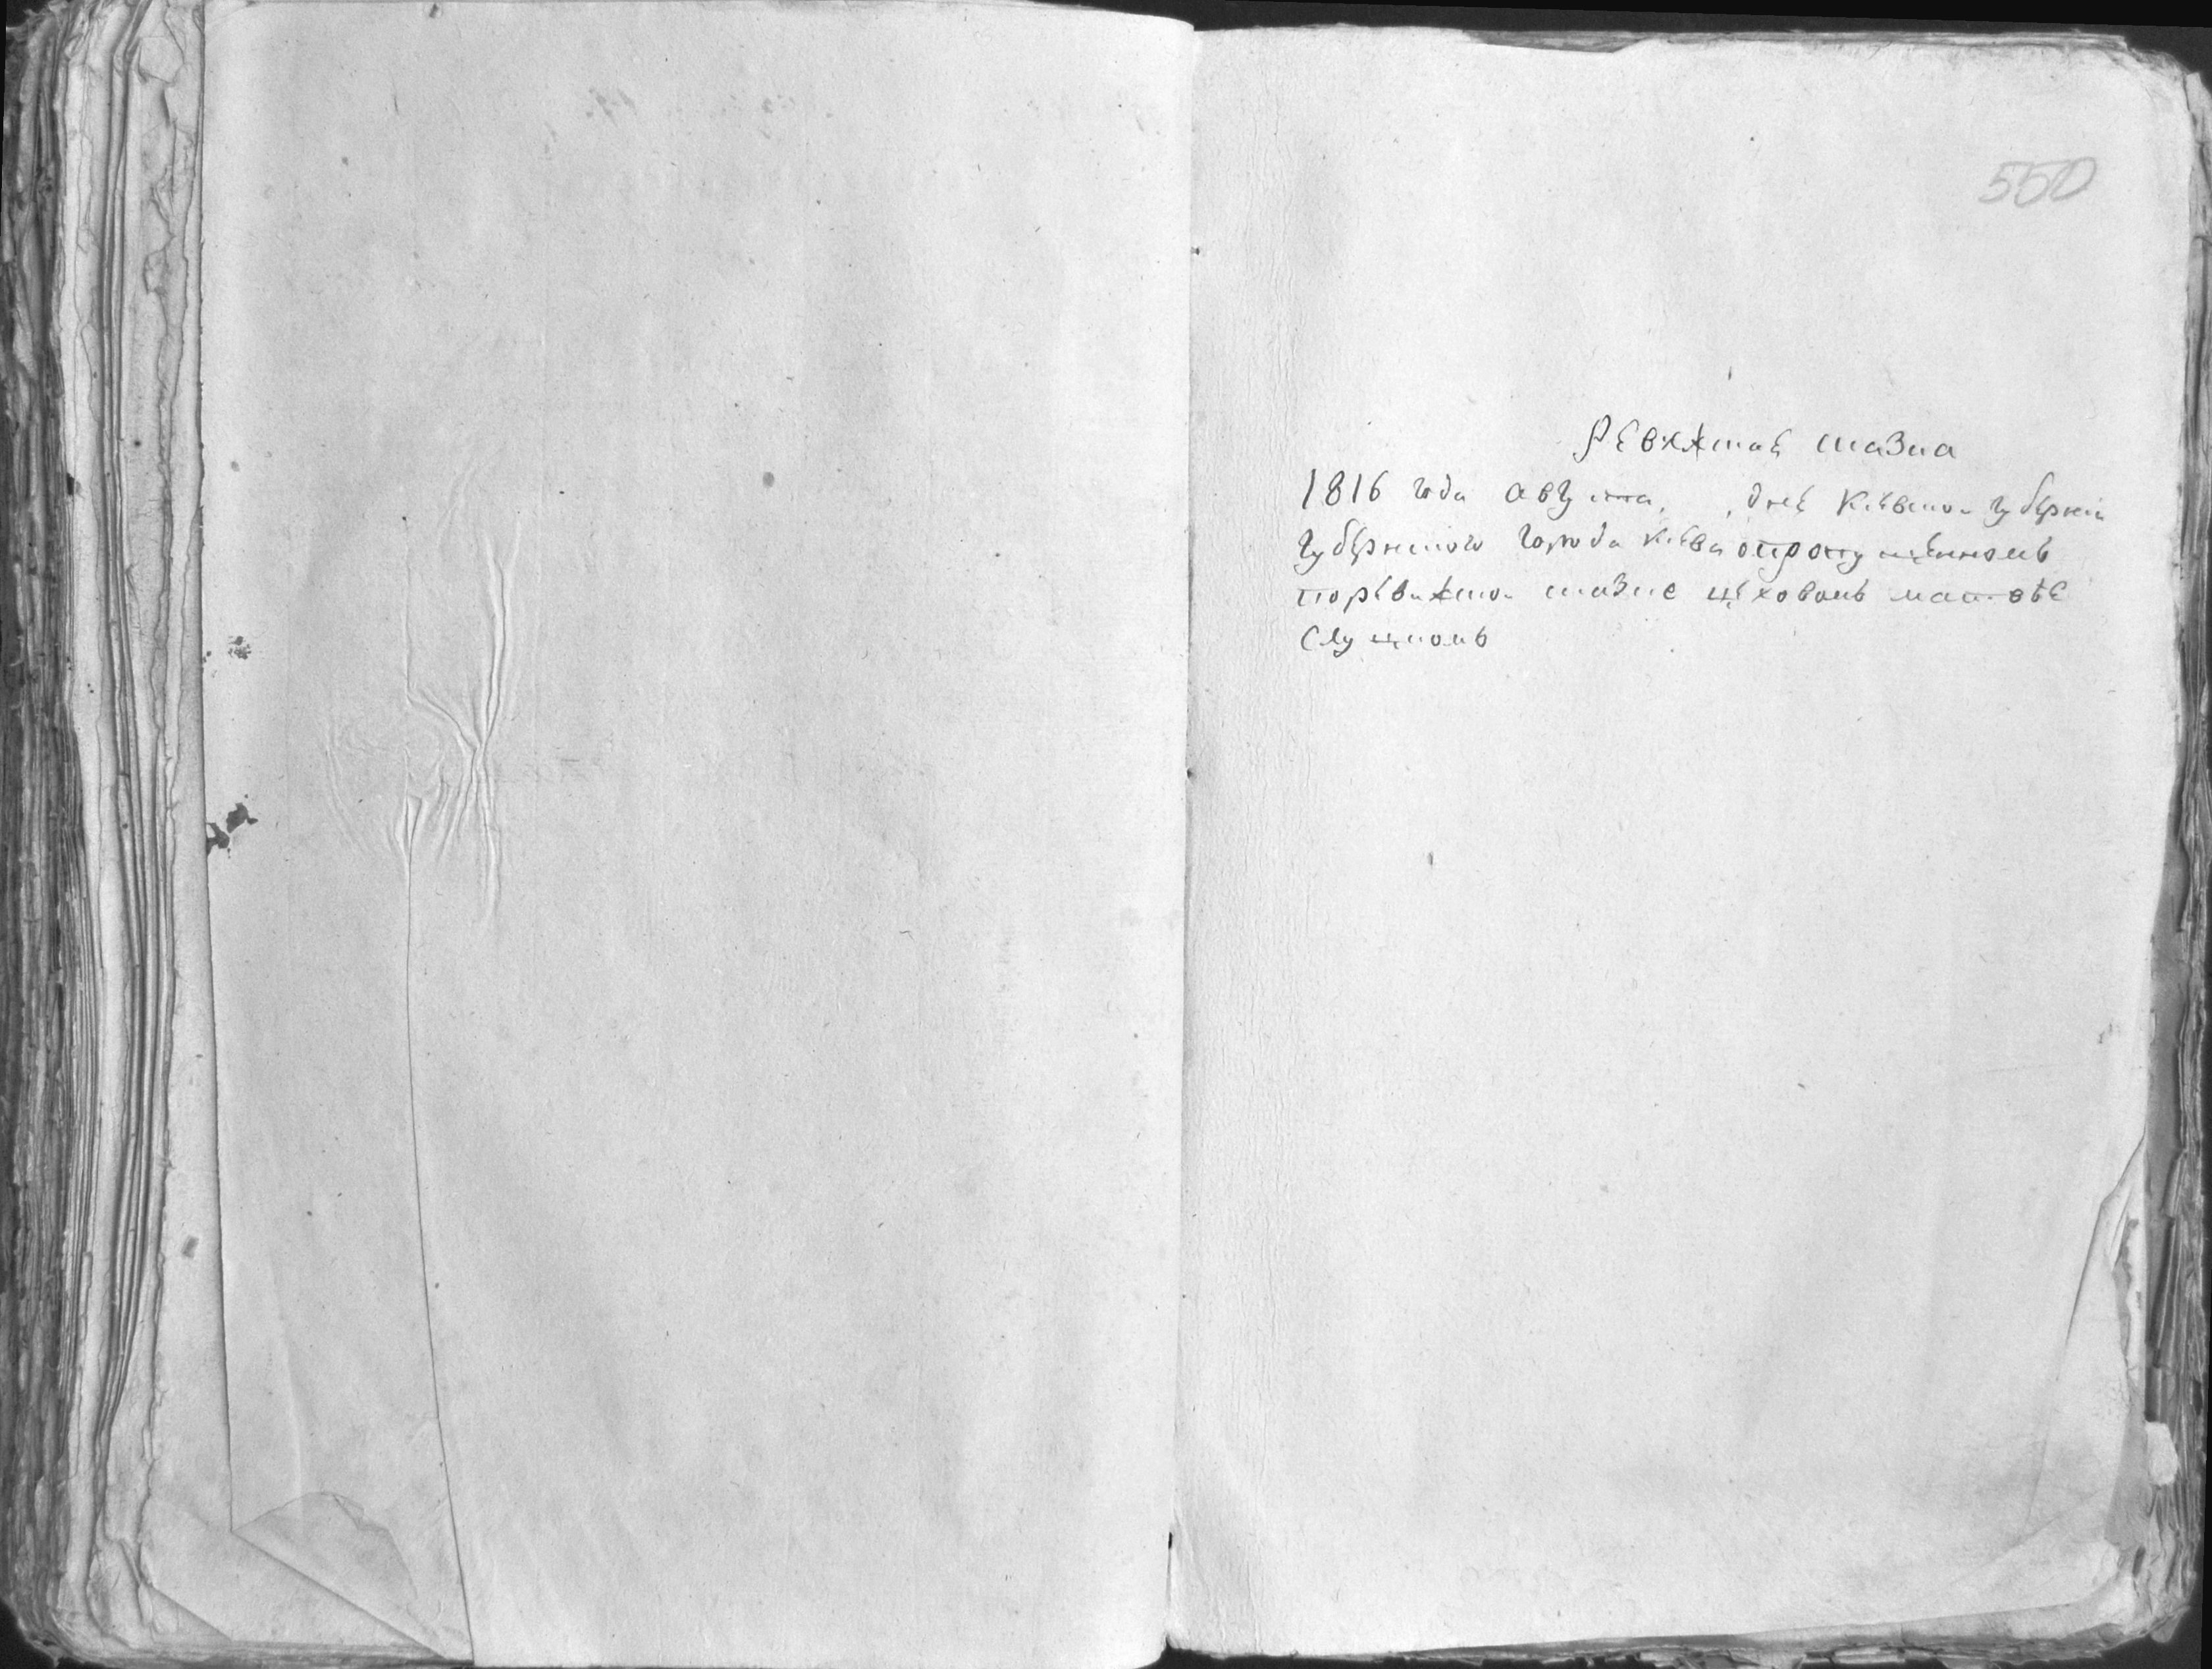 550
Ревижская сказка
1816 года августа, дня Киевской губернии
губернского города Киева опропущенномъ
поревижской сказке цеховомъ матвѣе
Слуцкомъ